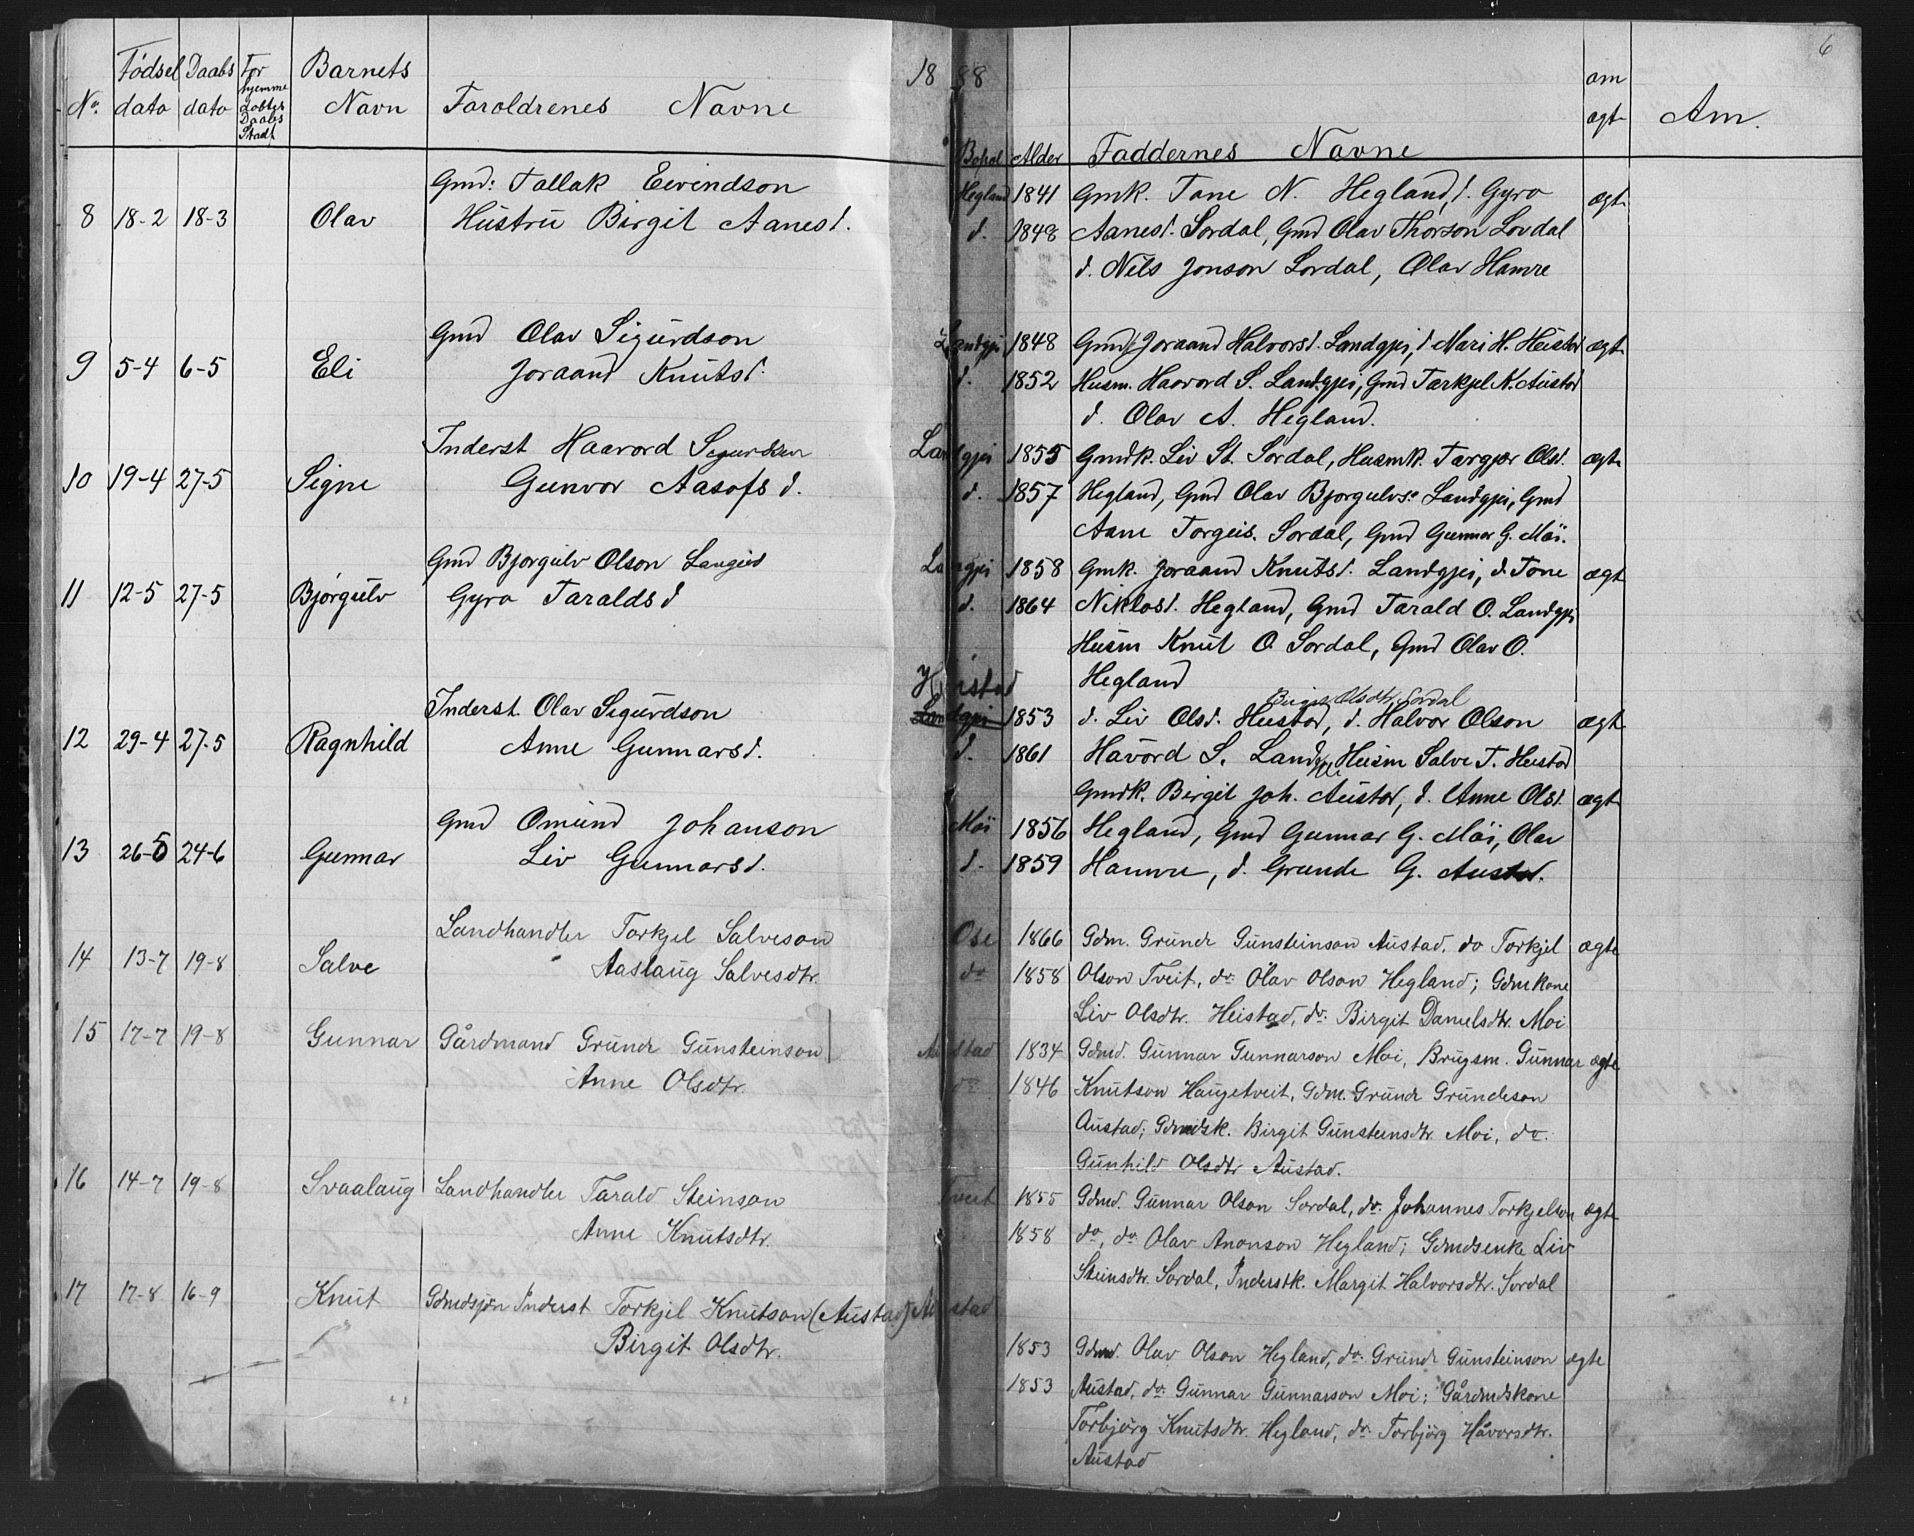 6
18 88
No. Fødsel dato Daabs dato For hjemme døbte Daabs Stadf. Barnets Navn Faroldrenes Navne Bopæl Alder Faddernes Navne om ægt Am.
8 18-2 18-3 Olav Gmd: Tallak Eivindson Hegland 1841 Gmk. Tone N. Hegland, d. Gyro ægt
Hustru Birgit Aanesd. d. 1848 Aanesd. Sordal, Gmd Olav Thorson Lovdal
d. Nils Jonson Sordal, Olav Hamre
9 5-4 6-5 Eli Gmd Olav Sigurdson Landgjei 1848 Gmd Joraand Halvorsd. Landgjei, d Mari H. Heistad ægt
Joraand Knutsd. d. 1852 Husm. Haavord S. Landgjei, Gmd Tarkjel K. Austad
d. Olav A. Hegland.
10 19-4 27-5 Signe Inderst Haavord Sigurdson Landgjei 1855 Gmdk. Liv St. Sordal, Husmk. Targjær Olsd. ægte
Gunvor Aasofs d. d. 1857 Hegland, Gmd Olav Bjorgulvs. Landgjei, Gmd
Aane Torgeis. Sordal, Gmd Gunnar G. Moi.
11 12-5 27-5 Bjørgulv Gmd Bjorgulv Olson Langeid Landgjei 1858 Gmk. Joraand Knutsd. Landgjei, d. Tone ægt
Gyro Taralds d d. 1864 Niklosd. Hegland, Gmd Tarald O. Landgjei
Husm Knut O. Sordal, Gmd Olav O.
Heistad Hegland
Birgit Olsdtr. Sordal
12 29-4 27-5 Ragnhild Inderst. Olav Sigurdson Landgjei 1853 d. Liv Olsd. Heistad, d. Halvor Olson ægt
Anne Gunnarsd. d. 1861 Håvord S. Landgjei Husm Salve T. Heistad
Gmdk. Birgit Joh. Austad, d. Anne Olsd. ægt
13 26-5 24-6 Gunnar Gmd Omund Johanson Moi 1856 Hegland, Gmd Gunnar G. Moi, Olav
Liv Gunnarsd. d. 1859 Hamre, d. Grunde G. Austad.
14 13-7 19-8 Salve Landhandler Torkjel Salveson Ose 1866 Gdm. Grunde Gunsteinson Austad, do Torkjel ægte
Aaslaug Salvesdtr. do 1858 Olson Tveit, do. Olav Olson Hegland; Gdmkone
Liv Olsdtr. Heistad, do. Birgit Danielsdtr. Moi
15 17-7 19-8 Gunnar Gårdmand Grunde Gunsteinson Austad 1834 Gdmd. Gunnar Gunnarson Moi, Brugsm. Gunnar ægte
Anne Olsdtr. do 1846 Knutson Haugetveit, Gdm. Grunde Grundeson
Austad; Gdmdsk. Birgit Gunsteinsdtr Moi, do.
Gunhild Olsdtr Austad.
16 14-7 19-8 Svaalaug Landhandler Tarald Steinson Tveit 1855 Gdmd. Gunnar Olson Sordal, do. Johannes Torkjelson ægte
Anne Knutsdtr. 1858 do, do Olav Anonson Hegland; Gdmdsenke Liv
Steinsdtr. Sordal, Inderstk. Margit Halvorsdtr. Sordal
17 17-8 16-9 Knut Gdmdsjøn Inderst Torkjel Knutson (Austad) Austad
Birgit Olsdtr. 1853 Gdmd. Olav Olson Hegland, do. Grunde Gunsteinson ægte
1853 Austad, do. Gunnar Gunnarson Moi; Gårdmdskone
Torbjørg Knutsdtr. Hegland, do. Torbjørg Håvorsdtr.
Austad